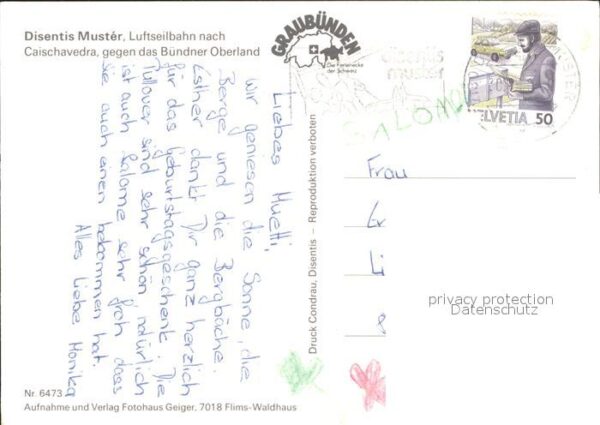 Disentis Mustér, Luftseilbahn nach
Caischavedra, gegen das Bündner Oberland
GRAUBÜNDEN
Die Ferienecke
der Schweiz
disentis
muster
HELVETIA 50
SALOME
Liebes Muetti,
Wir geniesen die Sonne, die
Berge und die Bergbäche.
Esther dankt Dir ganz herzlich
für das Geburtstagsgeschenk. Die
Pullover sind sehr schön natürlich
ist auch Salome sehr froh dass
sie auch einen bekommen hat.
Alles Liebe Monika
Druck Condrau, Disentis – Reproduktion verboten
Frau
privacy protection
Datenschutz
Nr. 6473
Aufnahme und Verlag Fotohaus Geiger, 7018 Flims-Waldhaus